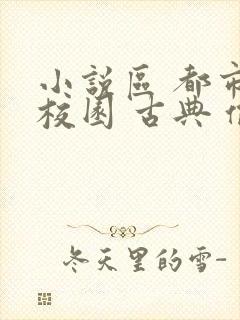 小說區 都市
校園 古典
冬天里的雪-